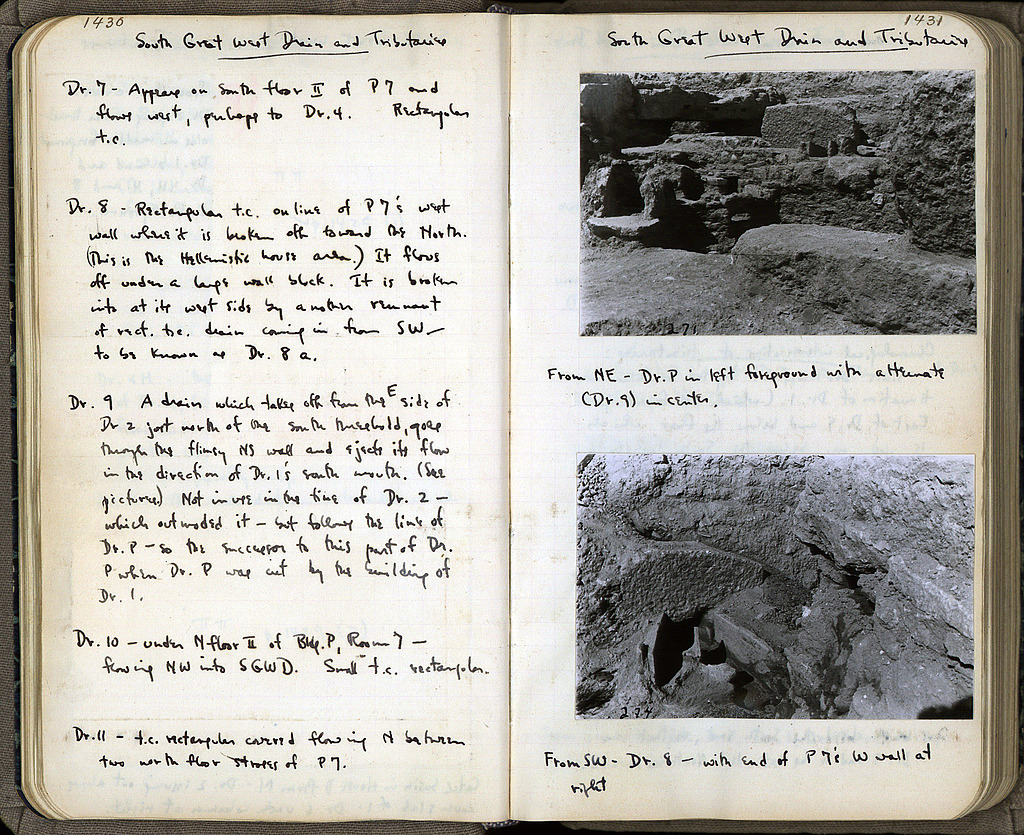 1430
South Great West Drain and Tributaries
Dr. 7 - Appears on South floor II of P7 and
flows west, perhaps to Dr. 4. Rectangular
t.c.
Dr. 8 - Rectangular t.c. on line of P7's west
wall where it is broken off toward the North.
(This is the Hellenistic house area.) It flows
off under a large wall block. It is broken
into at its west side by another remnant
of rect. t.c. drain coming in from SW -
to be known as Dr. 8a.
Dr. 9 A drain which takes off from the E side of
Dr 2 just north of the south threshold, goes
through the flimsy NS wall and ejects its flow
in the direction of Dr. 1's south mouth. (See
pictures) Not in use in the time of Dr. 2 -
which outmoded it - but follows the line of
Dr. P - so the successor to this part of Dr.
P when Dr. P was cut by the building of
Dr. 1.
Dr. 10 - under N floor II of Bldg. P, Room 7 -
flowing NW into SGWD. Small t.c. rectangular.
Dr. 11 - t.c. rectangular covered flowing N between
two north floor stroses of P7.
1431
South Great West Drain and Tributaries
271
From NE - Dr. P in left foreground with alternate
(Dr. 9) in center.
274
From SW - Dr. 8 - with end of P7's W wall at
right